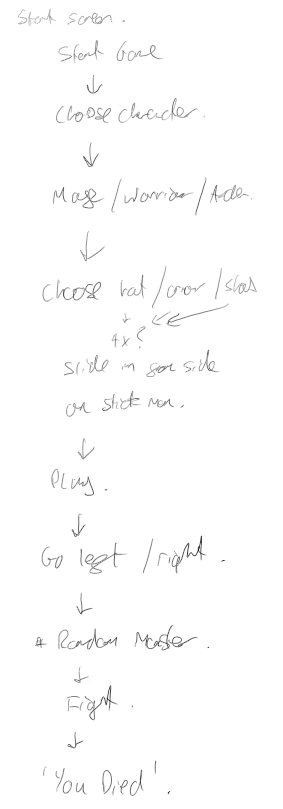 Start screen.
Start Game
Choose character.
Mage / Warrior / Archer.
Choose hat / armor / shoes
4x?
slide in from side
on stick man.
Play.
Go left / right.
* Random Monster.
Fight.
'You Died'.